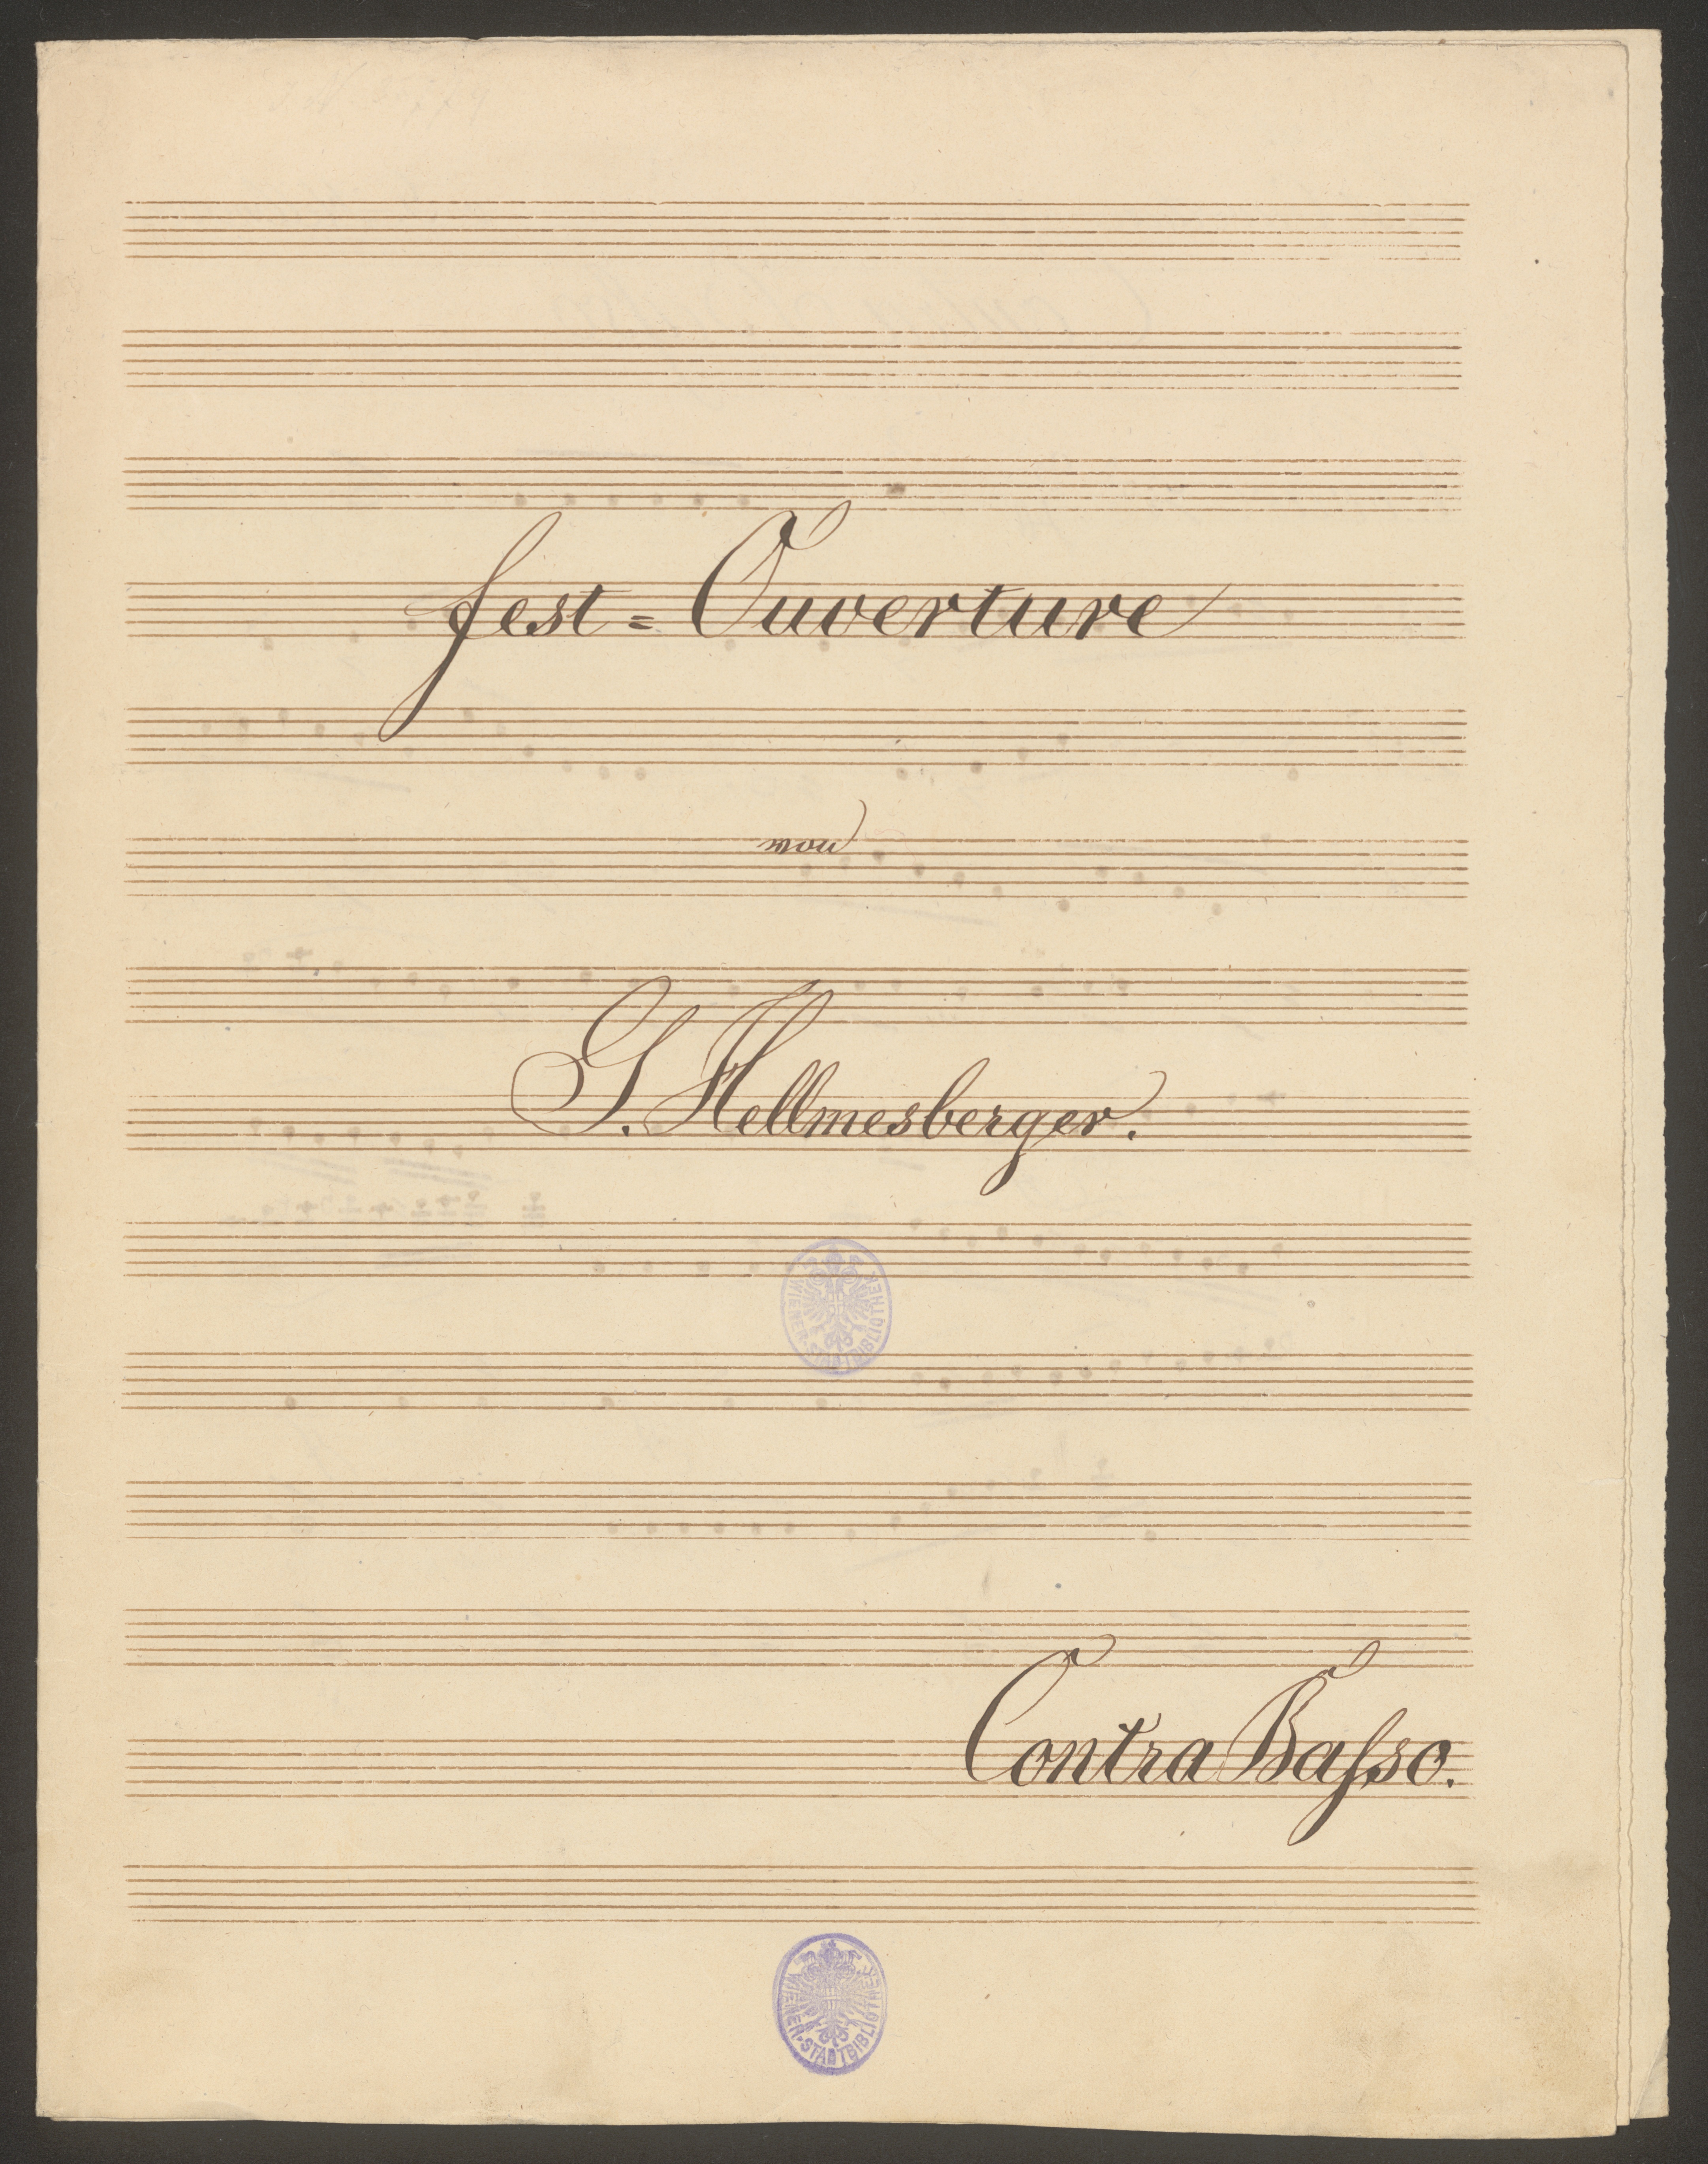 Fest=Ouverture
von
G. Hellmesberger.
WIENER·STADTBIBLIOTHEK
Contra Baſso.
WIENER·STADTBIBLIOTHEK